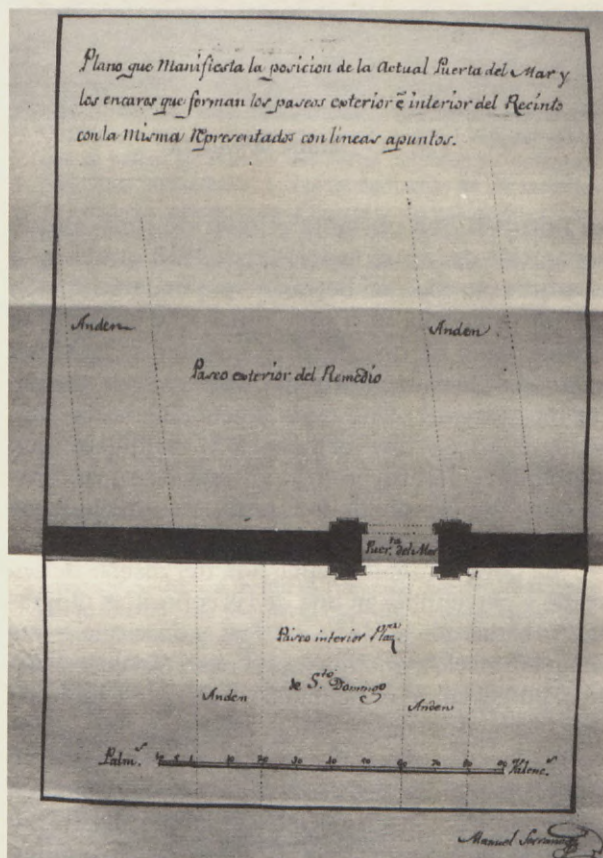 Plano que Manifiesta la posicion de la Actual Puerta del Mar y
los encaros que forman los paseos exterior é interior del Recinto
con la Misma Representados con lineas apuntos.
Anden Anden
Paseo exterior del Remedio
Puer.ta del Mar
Paseo interior Plaz.a
de S.to Domingo
Anden Anden
Palm.s 10 5 1 10 20 30 40 50 60 70 80 90 Valenc.s
Manuel Serrano